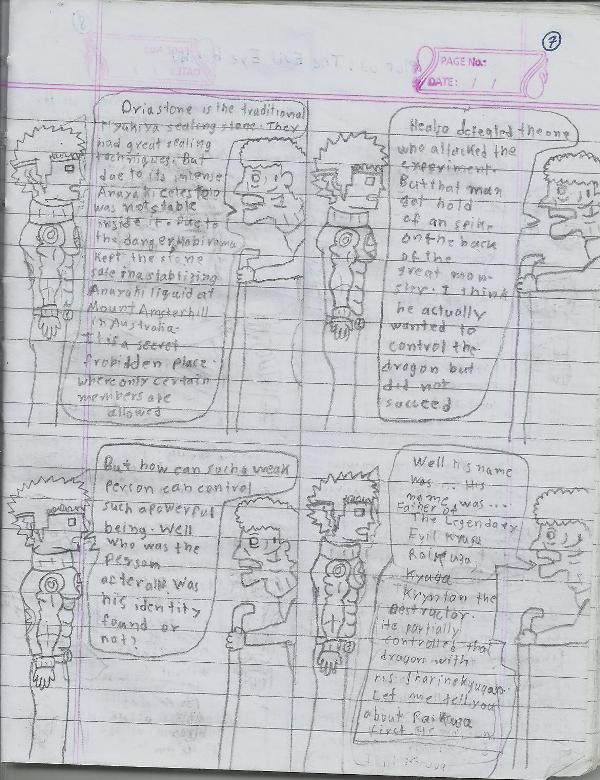 7
PAGE No:
DATE: / /
Oriastone is the traditional
Hyukiya sealing stone. They
had great sealing
techniques. But
due to its intense
Anaraki celestoto
was not stable
inside it. Due to
the danger Mabirama
kept the stone
safe in a stabilizing
Anaraki liquid at
Mount Amsterhill
in Australia.
It is a secret
frobidden place
where only certain
members are
allowed
He also defeated the one
who attacked the
experiment.
But that man
got hold
of an spike
on the back
of the
great mon-
ster. I think
he actually
wanted to
control the
dragon but
did not
succeed
But how can such a weak
person can control
such a powerful
being. Well
who was the
person
acterall was
his identity
found or
not?
Well his name
was... His
name was...
Father of
The Legendary
Evil Kyuga
Raikuga
Kyuga
Krynton the
Destructor.
He partially
controlled that
dragon with
his
Let me tell you
about Raikuga
first